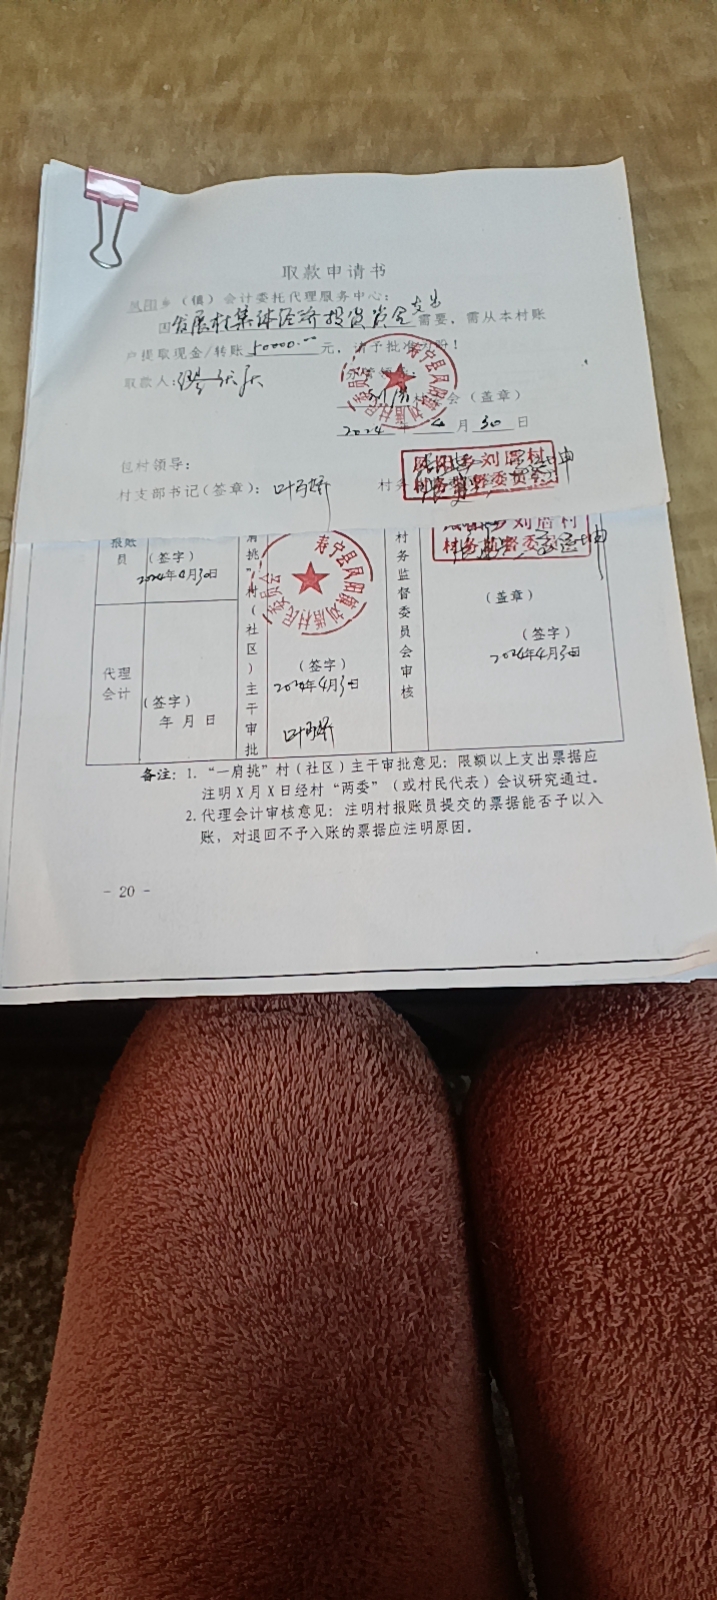 取款申请书
凤阳乡（镇）会计委托代理服务中心：
因发展村集体经济投资资金支出需要，需从本村账
户提取现金/转账 50000.00 元，请予批准为盼！
取款人：
村 会（盖章）
2024 年 4 月 30 日
包村领导：
村支部书记(签章)：
村务
刘厝村
村务监督委员会
寿宁县凤阳镇刘厝村民委员会
报账员
(签字)
2024年4月30日
代理会计
(签字)
年 月 日
肩挑”村(社区)主干审批
寿宁县凤阳镇刘厝村民委员会
(签字)
2024年4月30日
村务监督委员会审核
刘厝村
村务监督委员会
(盖章)
(签字)
2024年4月30日
备注：1. “一肩挑”村(社区)主干审批意见：限额以上支出票据应
注明X月X日经村“两委”(或村民代表)会议研究通过。
2. 代理会计审核意见：注明村报账员提交的票据能否予以入
账，对退回不予入账的票据应注明原因。
- 20 -